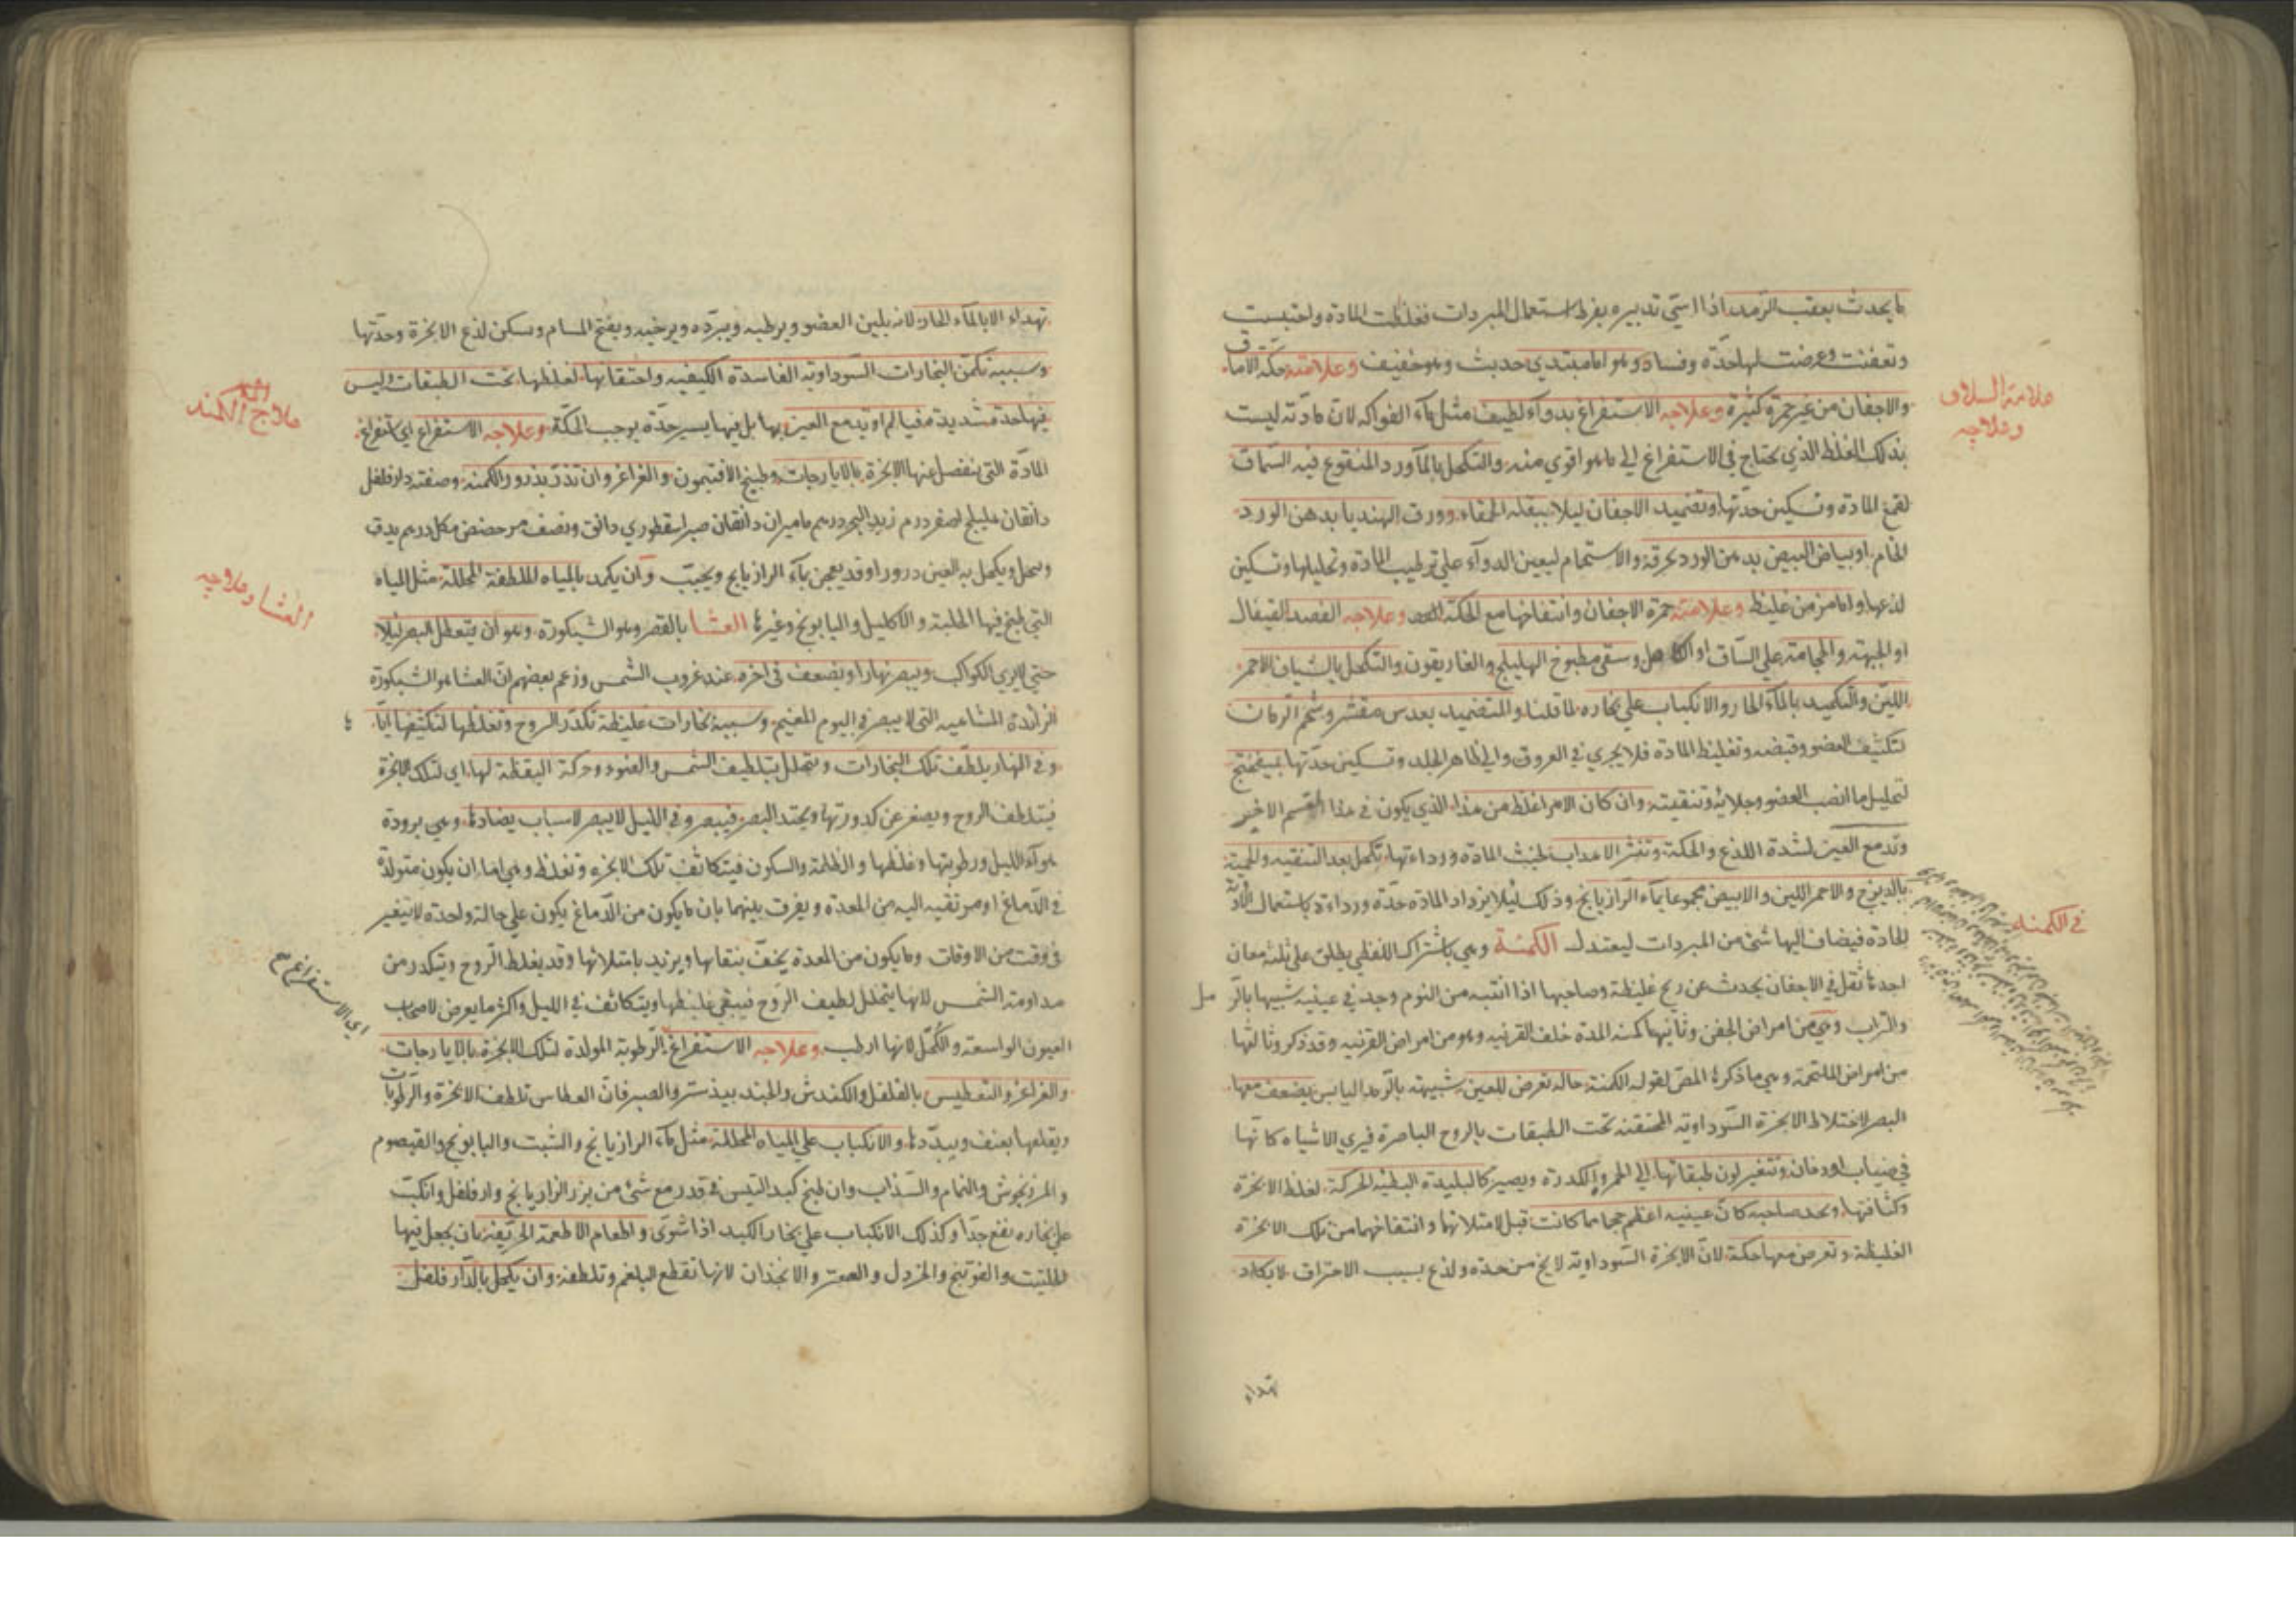 ما يحدث بعقب الرمد اذا اسيئ تدبيره بفرط استعمال المبردات فغلظت المادة واحتبست
وتعفنت وعرضت لها حدة وفساد وهو اما مبتدي حديث وهو خفيف وعلامته حكة الاماق
والاجفان من غير حمرة كثيرة وعلاجه الاستفراغ بدواء لطيف مثل ماء الفواكه لان مادته ليست
بذلك الغلظ الذي يحتاج في الاستفراغ الي ما هو اقوي منه والتكحل بالماورد المنقوع فيه السماق
لقمع المادة وتسكين حدتها وتضميد الاجفان ليلا ببقلة الحمقاء وورق الهندبا بدهن الورد
الخام او بياض البيض بدهن الورد بخرقة والاستحمام ليعين الدواء علي ترطيب المادة وتحليلها وتسكين
لذعها واما مزمن غليظ وعلامته حمرة الاجفان وانتفاخها مع الحكة وعلاجه الفصد القيفال
او الجبهة والحجامة علي الساق او الكاهل وسقي مطبوخ الهليلج والغاريقون والتكحل بالشياف الاحمر
اللين والتكميد بالماء الحار والانكباب علي بخاره لما قلنا والتضميد بعدس مقشر وشحم الرمان
لتكثيف العضو وقبضه وتغليظ المادة فلا يجري في العروق والي ظاهر الجلد وتسكين حدتها بميفختج
لتحليل ما انصب العضو وجلائه وتنقيته وان كان الامر اغلظ من هذا الذي يكون في هذا القسم الاخير
وتدمع العين لشدة اللذع والحكة وتنثر الاهداب لخبث المادة ورداءتها تكحل بعد التنقيه والحمية
بالديزج والاحمر اللين والابيض مجموعا بماء الرازيانج وذلك ليلا يزداد المادة حدة ورداءة باستعمال الادوية
الحادة فيضاف اليها شئ من المبردات ليعتدل الكمنة وهي باشتراك اللفظ يطلق علي ثلثة معان
احدها ثقل في الاجفان يحدث عن ريح غليظة وصاحبها اذا انتبه من النوم وجد في عينيه شبيها بالرمل
والتراب وهي من امراض الجفن وثانيها كمنة المدة خلف القرنيه وهو من امراض القرنيه وقد ذكر وثالثها
من امراض الملتحمة وهي ما ذكره المص بقوله الكمنة حالة تعرض للعين شبيهة بالرمد اليابس يضعف معها
البصر لاختلاط الابخرة السوداوية المحتقنة تحت الطبقات بالروح الباصرة فيري الاشياء كانها
في ضباب او دخان وتتغير لون طبقاتها الي الحمرة والكدرة ويصير كالبليدة البطيئة الحركة لغلظ الابخرة
وكثافتها ويجد صاحبه كان عينيه اعظم حجما مما كانت قبل لامتلائهما وانتفاخهما من تلك الابخرة
الغليظة وتعرض معها حكة لان الابخرة السوداوية لا يخ من حدة ولذع بسبب الاحتراق لا يكاد
تهداء
علامة السلاق
وعلاجه
في الكمنه
تهداء الا بالماء الحار لانه يلين العضو ويرطبه ويبرده ويرخيه ويفتح المسام ويسكن لذع الابخرة وحدتها
وسببه تكمن البخارات السوداوية الفاسدة الكيفيه واحتقانها لغلظها تحت الطبقات وليس
فيها حدة شديدة فيالم او يدمع العين بها بل فيها يسير حدة يوجب الحكة وعلاجه الاستفراغ اي استفراغ
المادة التي ينفصل عنها الابخرة بالايارجات وطبيخ الافتيمون والغراغر وان تذر بذرور الكمنه وصفته دارفلفل
دانقان هليلج اصفر درم زبد البحر درهم ماميران دانقان صبر اسقطوري دانق ونصف حضض مكي درهم يدق
وينخل ويكحل به العين درورا وقد يعجن بماء الرازيانج ويحبب وان يكمد بالمياه الملطفة المحللة مثل المياه
التي طبخ فيها الحلبة والاكليل والبابونج وغيرها العشا بالقصر وهو الشبكورة وهو ان يتعطل البصر ليلا
حتي لا يري الكواكب ويبصر نهارا ويضعف في اخره عند غروب الشمس وزعم بعضهم ان العشا هو الشبكورة
الزائدة المتناهيه التي لا يبصر في اليوم المغيم وسببه بخارات غليظة تكدر الروح وتغلظها لتكثيفها اياها
وفي النهار يلطف تلك البخارات ويتحلل بتلطيف الشمس والضوء وحركة اليقظة لها اي لتلك الابخرة
فيتلطف الروح ويصفر عن كدورتها ويحتد البصر فيبصر وفي الليل لا يبصر لاسباب يضادها وهي برودة
هواء الليل ورطوبتها وغلظها والظلمة والسكون فيتكاثف تلك الابخره وتغلظ وهي اما ان يكون متولدة
في الدماغ او مرتقيه اليه من المعدة ويفرق بينهما بان ما يكون من الدماغ يكون علي حالة واحدة لا يتغير
في وقت من الاوقات وما يكون من المعدة يخف بنقائها ويزيد بامتلائها وقد يغلظ الروح ويتكدر من
مداومة الشمس لانها يتحلل لطيف الروح فيبقي غليظها ويتكاثف في الليل واكثر ما يعرض لاصحاب
العيون الواسعة والكحل لانها ارطب وعلاجه الاستفراغ الرطوبة المولدة لتلك الابخرة بالايارجات
والغراغر والتعطيس بالفلفل والكندش والجند بيدستر والصبر فان العطاس تلطف الابخرة والرطوبات
ويقلعها بعنف ويبددها والانكباب علي المياه المحللة مثل ماء الرازيانج والشبت والبابونج والقيصوم
والمرزنجوش والنمام والسذاب وان طبخ كبد التيس في قدر مع شئ من بزر الرازيانج ودارفلفل وانكب
علي بخاره نفع جدا وكذلك الانكباب علي بخار الكبد اذا شوي واطعام الاطعمة الحريفة بان يجعل فيها
الحلتيت والفوتنج والخردل والصعتر والانجذان لانها تقطع البلغم وتلطفه وان يكحل بالدارفلفل
علاج الكمنه
العشا وعلاجه
اي الاستفراغ